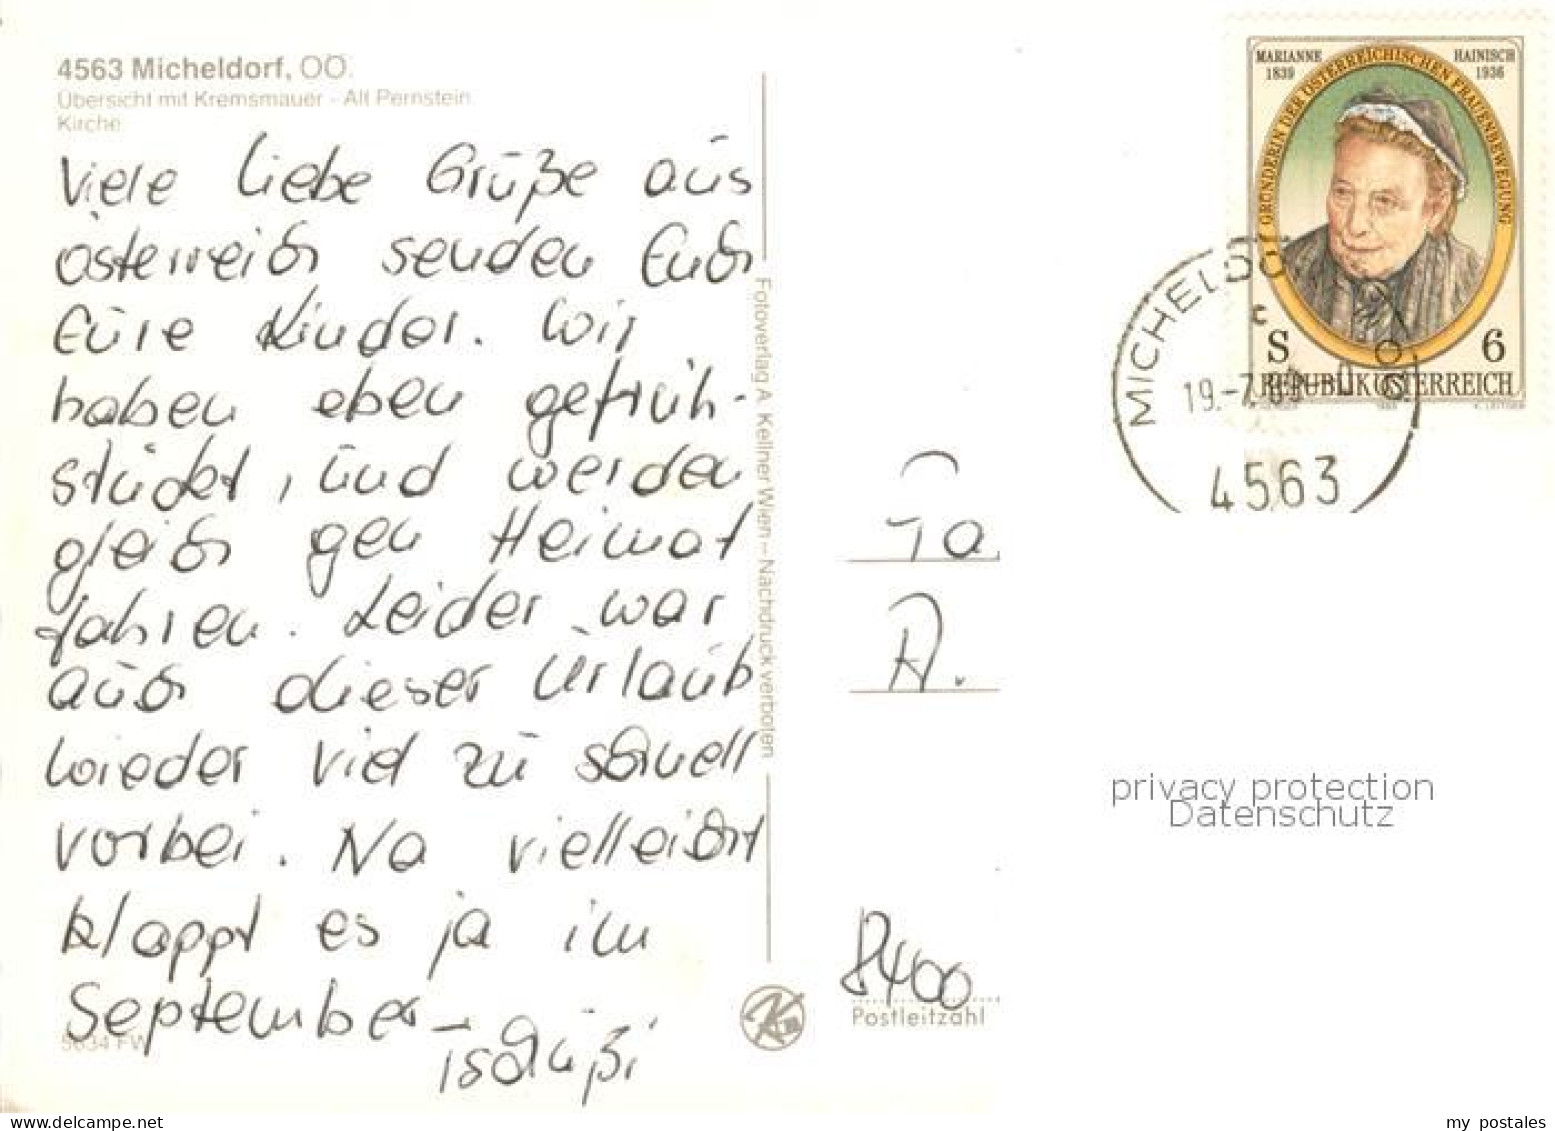 4563 Micheldorf, OÖ.
Übersicht mit Kremsmauer - Alt Pernstein
Kirche
Viele liebe Grüße aus
Österreich senden Euch
Eure Kinder. Wir
haben eben gefrüh-
stückt, und werden
gleich gen Heimat
fahren. Leider war
auch dieser Urlaub
wieder viel zu schnell
vorbei. Na vielleicht
klappt es ja im
September
Tschüßi
5634 FW
Fotoverlag A. Kellner Wien – Nachdruck verboten
MARIANNE HAINISCH
1839 1936
GRÜNDERIN DER ÖSTERREICHISCHEN FRAUENBEWEGUNG
S 6
REPUBLIK ÖSTERREICH
1989 K. LEITGEB
MICHELDORF
c
19.-7.89
4563
Fa
A.
8400
Postleitzahl
privacy protection
Datenschutz
my postales